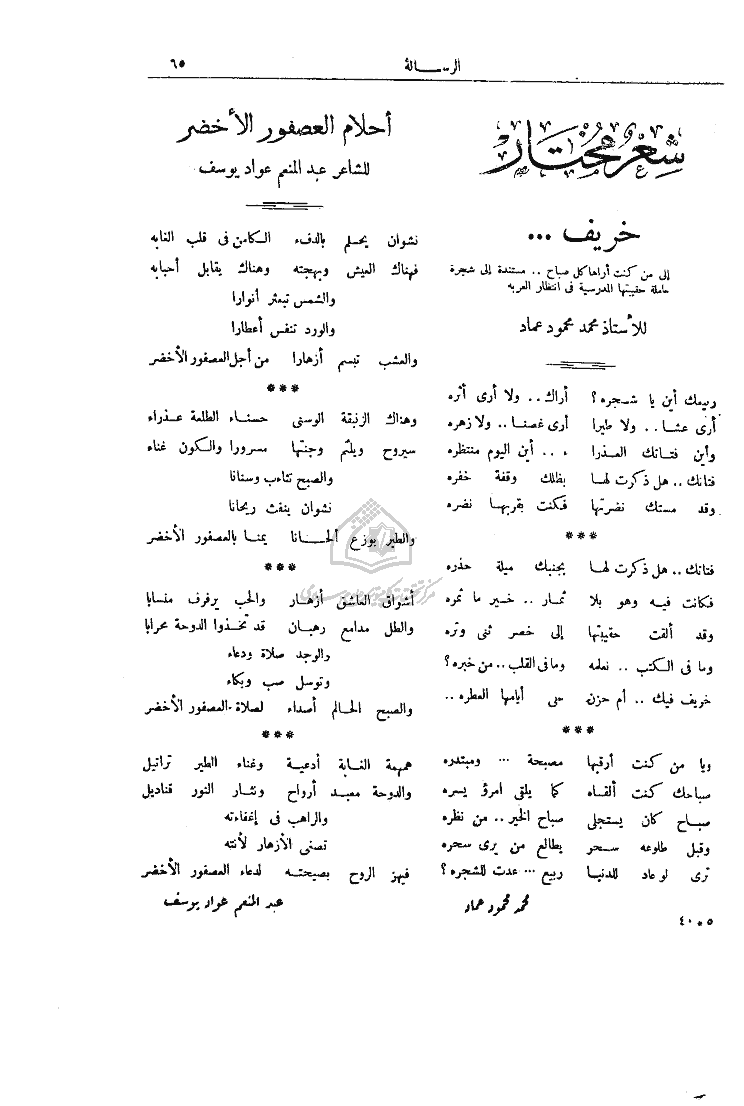 الرسالة
٦٥
شعر مختار
خريف ...
إلى من كنت أراها كل صباح .. مستندة إلى شجرة
حاملة حقيبتها المدرسية فى انتظار العربه
للأستاذ محمد محمود عماد
ربيعك أين يا شجره؟ أراك .. ولا أرى أثره
أرى عشا .. ولا طيرا أرى غصنا .. ولا زهره
وأين فتاتك العذرا ء .. أين اليوم منتظره
فتاتك .. هل ذكرت لها بظلك وقفة خفره
وقد مستك نضرتها فكنت بقربها نضره
***
فتاتك .. هل ذكرت لها بجنبك ميلة حذره
فكانت فيه وهو بلا ثمار .. خير ما ثمره
وقد ألقت حقيبتها إلى خصر ثنى وتره
وما فى الكتب .. نعلمه وما فى القلب .. من خبره؟
خريف فيك .. أم حزن على أيامها العطره ..
***
ويا من كنت أرقبها مصبحة ... ومبتدره
صباحك كنت ألقاه كما يلقى امرؤ يسره
صباح كان يستجلى صباح الخير .. من نظره
وقبل طلوعه سحر يطالع من يرى سحره
ترى لو عاد للدنيا ربيع ... عدت للشجره؟
محمد محمود عماد
أحلام العصفور الأخضر
للشاعر عبد المنعم عواد يوسف
نشوان يحلم بالدفء الكامن فى قلب الغابه
فهناك العيش وبهجته وهناك يقابل أحبابه
والشمس تبعثر أنوارا
والورد تنفس أعطارا
والعشب تبسم أزهارا من أجل العصفور الأخضر
***
وهناك الزنبقة الوسنى حسناء الطلعة عذراء
سيروح ويلثم وجنتها مسرورا والكون غناء
والصبح تثاءب وسنانا
نشوان ينفث ريحانا
والطير يوزع ألحانا يمنا بالعصفور الأخضر
***
أشواق العاشق أزهار والحب يرفرف منسابا
والطل مدامع رهبان قد تخذوا الدوحة محرابا
والوجد صلاة ودعاء
وتوسل صب وبكاء
والصبح الحالم أصداء لصلاة العصفور الأخضر
***
همهمة الغابة أدعية وغناء الطير تراتيل
والدوحة معبد أرواح ونثار النور قناديل
والراهب فى إغفاءته
تصغى الأزهار لأنته
فيهز الروح بصيحته لدعاء العصفور الأخضر
عبد المنعم عواد يوسف